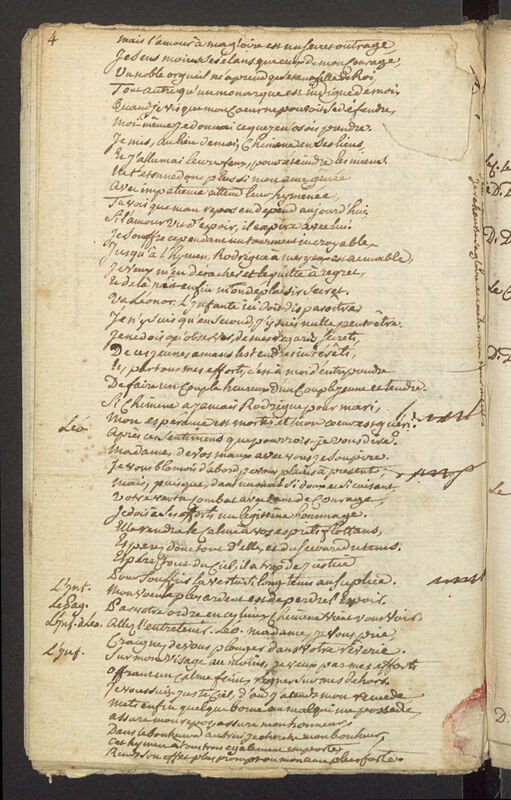 4
mais l'amour à ma gloire est un
Je sens moins ses élans que ceux de mon courage,
Un noble orgueil m'apprend qu'étant fille de Roi,
Tout autre qu'un monarque est indigne de moi.
Quand je vis que mon cœur ne pouvoit se défendre,
Moi-même je donnai ce que je n'osois prendre.
Je mis, au lieu de moi, Chimene en ses liens,
Et j'allumai leurs feux, pour éteindre les miens.
Ne t'étonne donc plus si mon ame genée
Avec impatience attend leur hymenée
Tu vois que mon repos en dépend aujourd'hui;
Si l'amour vit d'espoir, il expire avec lui.
Je souffre cependant un tourment incroyable,
Jusqu'à l'hymen Rodrigue à mes yeux est aimable.
à regret,
Et de là naît enfin mon déplaisir secret.
Léonor, l'Infante ici doit disparoitre
Je n'y suis qu'en second, j'y suis nulle peut-être.
Je ne dois qu'observer, de mes regards secrets,
De ces jeunes amans les tendres intérêts,
Et, par tous mes efforts, c'est à moi d'entreprendre
De faire un couple heureux d'un couple jeune et tendre.
Si Chimene a jamais Rodrigue pour mari,
Mon espérance est morte, et mon cœur est guéri.
Léo. Après ces sentimens que pourrois-je vous dire?
Madame, de vos maux avec vous je soupire.
Je vous blamois d'abord, je vous plains à present,
Mais, puisque, dans un mal si doux et si cuisant
Votre vertu combat avec tant de courage,
Je dois à ses efforts un légitime hommage.
Elle rendra le calme à vos esprits flottans,
Espérez donc tout d'elle, et du secours du tems.
Espérez tout du Ciel, il a trop de justice
Pour souffrir la vertu si long-tems au suplice.
L'Inf. Mon voeu le plus ardent est de perdre l'espoir.
Le Pag. Par votre ordre en ces lieux Chimene vient vous voir.
L'Inf. à Léo. Allez l'entretenir. Léo. madame, je vous prie
Craignez de vous plonger dans votre rêverie.
L'Inf. Sur mon visage au moins, je veux par mes efforts
offrant un calme feint, régner sur mes dehors.
Je vous suis, juste Ciel, d'où j'attends mon remede
Mets enfin quelque borne au mal qui me possede,
assure mon repos, assure mon honneur.
Dans le bonheur d'autrui je cherche mon bonheur,
Cet hymen à tous trois également importe,
Rends son effet plus prompt ou mon ame plus forte.